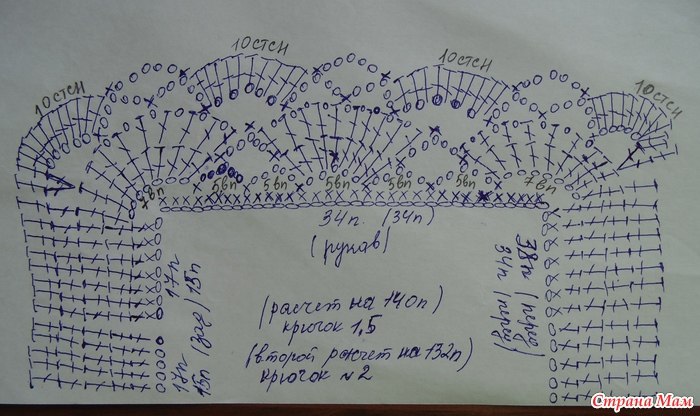 10стсн
10стсн
10стсн
10стсн
7вп
5вп
5вп
5вп
5вп
5вп
7вп
34п. (34п)
(рукав)
17п
15п (зад)
17п
15п
38п (перед)
34п (перед)
(расчет на 140п)
крючок 1,5
(второй расчет на 132п)
крючок №2
Страна Мам